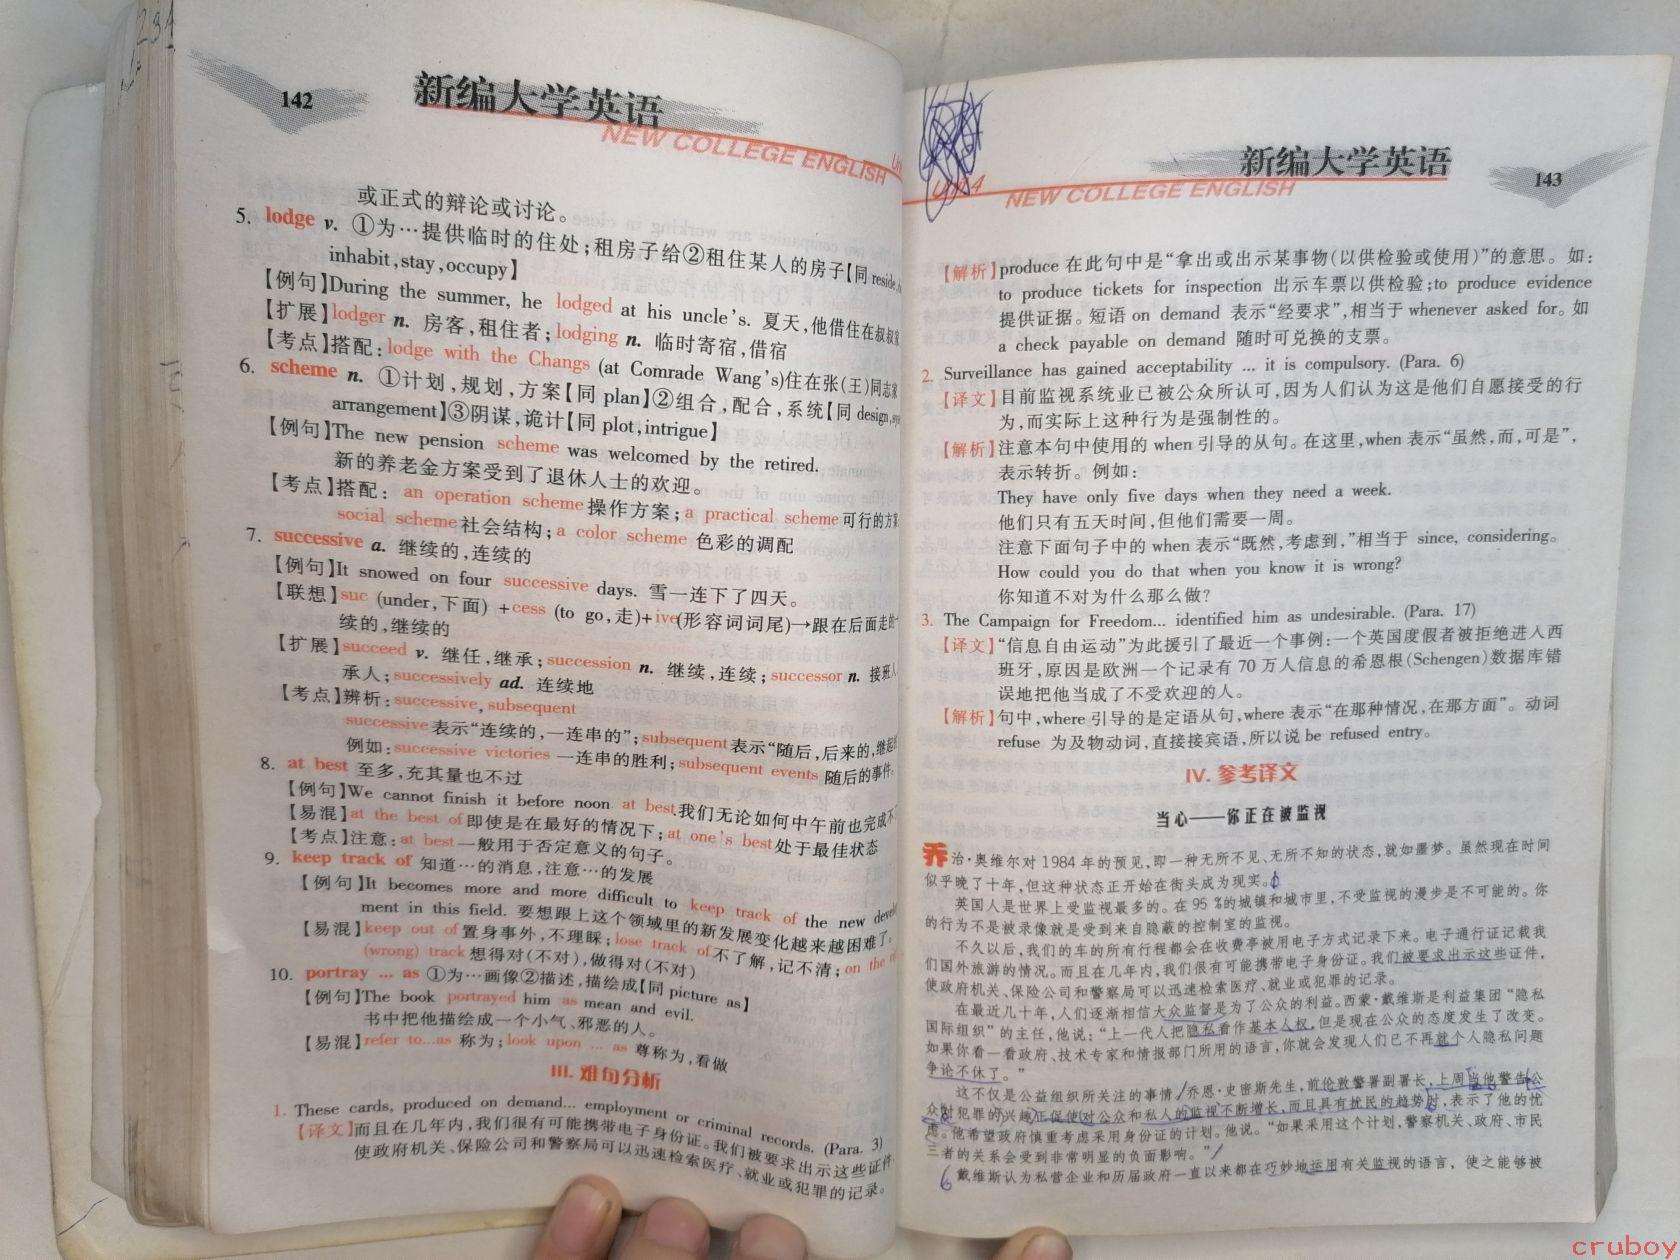 142
新编大学英语
NEW COLLEGE ENGLISH
或正式的辩论或讨论。
5. lodge v. ①为…提供临时的住处;租房子给②租住某人的房子【同 reside,
inhabit,stay,occupy】
【例句】During the summer, he lodged at his uncle's. 夏天,他借住在叔叔家
【扩展】lodger n. 房客,租住者;lodging n. 临时寄宿,借宿
【考点】搭配:lodge with the Changs (at Comrade Wang's)住在张(王)同志家
6. scheme n. ①计划,规划,方案【同 plan】②组合,配合,系统【同 design,
arrangement】③阴谋,诡计【同 plot,intrigue】
【例句】The new pension scheme was welcomed by the retired.
新的养老金方案受到了退休人士的欢迎。
【考点】搭配: an operation scheme操作方案;a practical scheme可行的方
social scheme社会结构;a color scheme 色彩的调配
7. successive a. 继续的,连续的
【例句】It snowed on four successive days. 雪一连下了四天。
【联想】suc (under,下面) +cess (to go,走)+ive(形容词词尾)→跟在后面走的
续的,继续的
【扩展】succeed v. 继任,继承;succession n. 继续,连续;successor n. 接班人
承人;successively ad. 连续地
【考点】辨析:successive, subsequent
successive表示“连续的,一连串的”;subsequent表示“随后,后来的,继起
例如:successive victories 一连串的胜利;subsequent events 随后的事件。
8. at best 至多,充其量也不过
【例句】We cannot finish it before noon at best.我们无论如何中午前也完成不
【易混】at the best of即使是在最好的情况下;at one's best处于最佳状态
【考点】注意:at best一般用于否定意义的句子。
9. keep track of 知道…的消息,注意…的发展
【例句】It becomes more and more difficult to keep track of the new
ment in this field. 要想跟上这个领域里的新发展变化越来越困难了。
【易混】keep out of置身事外,不理睬;lose track of不了解,记不清;on the
(wrong) track想得对(不对),做得对(不对)
10. portray ... as ①为…画像②描述,描绘成【同 picture as】
【例句】The book portrayed him as mean and evil.
书中把他描绘成一个小气、邪恶的人。
【易混】refer to...as 称为;look upon ... as 尊称为,看做
III. 难句分析
1. These cards, produced on demand... employment or criminal records. (Para. 3)
【译文】而且在几年内,我们很有可能携带电子身份证。我们被要求出示这些证件,
使政府机关、保险公司和警察局可以迅速检索医疗、就业或犯罪的记录。
Unit 4
新编大学英语
NEW COLLEGE ENGLISH
143
【解析】produce 在此句中是“拿出或出示某事物(以供检验或使用)”的意思。如:
to produce tickets for inspection 出示车票以供检验;to produce evidence
提供证据。短语 on demand 表示“经要求”,相当于 whenever asked for。如
a check payable on demand 随时可兑换的支票。
2. Surveillance has gained acceptability ... it is compulsory. (Para. 6)
【译文】目前监视系统业已被公众所认可,因为人们认为这是他们自愿接受的行
为,而实际上这种行为是强制性的。
【解析】注意本句中使用的 when 引导的从句。在这里,when 表示“虽然,而,可是”,
表示转折。例如:
They have only five days when they need a week.
他们只有五天时间,但他们需要一周。
注意下面句子中的 when 表示“既然,考虑到,”相当于 since, considering。
How could you do that when you know it is wrong?
你知道不对为什么那么做?
3. The Campaign for Freedom... identified him as undesirable. (Para. 17)
【译文】“信息自由运动”为此援引了最近一个事例:一个英国度假者被拒绝进入西
班牙,原因是欧洲一个记录有 70 万人信息的希恩根(Schengen)数据库错
误地把他当成了不受欢迎的人。
【解析】句中,where 引导的是定语从句,where 表示“在那种情况,在那方面”。动词
refuse 为及物动词,直接接宾语,所以说 be refused entry。
IV. 参考译文
当心——你正在被监视
乔治·奥维尔对 1984 年的预见,即一种无所不见、无所不知的状态,就如噩梦。虽然现在时间
似乎晚了十年,但这种状态正开始在街头成为现实。
英国人是世界上受监视最多的。在 95 %的城镇和城市里,不受监视的漫步是不可能的。你
的行为不是被录像就是受到来自隐蔽的控制室的监视。
不久以后,我们的车的所有行程都会在收费亭被用电子方式记录下来。电子通行证记载我
们国外旅游的情况。而且在几年内,我们很有可能携带电子身份证。我们被要求出示这些证件,
使政府机关、保险公司和警察局可以迅速检索医疗、就业或犯罪的记录。
在最近几十年,人们逐渐相信大众监督是为了公众的利益。西蒙·戴维斯是利益集团“隐私
国际组织”的主任,他说:“上一代人把隐私看作基本人权,但是现在公众的态度发生了改变。
如果你看一看政府、技术专家和情报部门所用的语言,你就会发现人们已不再就个人隐私问题
争论不休了。”
这不仅是公益组织所关注的事情,乔恩·史密斯先生,前伦敦警署副署长,上周当他警告公
众对犯罪的兴趣正促使对公众和私人的监视不断增长,而且具有扰民的趋势时,表示了他的忧
虑。他希望政府慎重考虑采用身份证的计划。他说。“如果采用这个计划,警察机关、政府、市民
三者的关系会受到非常明显的负面影响。”
戴维斯认为私营企业和历届政府一直以来都在巧妙地运用有关监视的语言, 使之能够被
cruboy